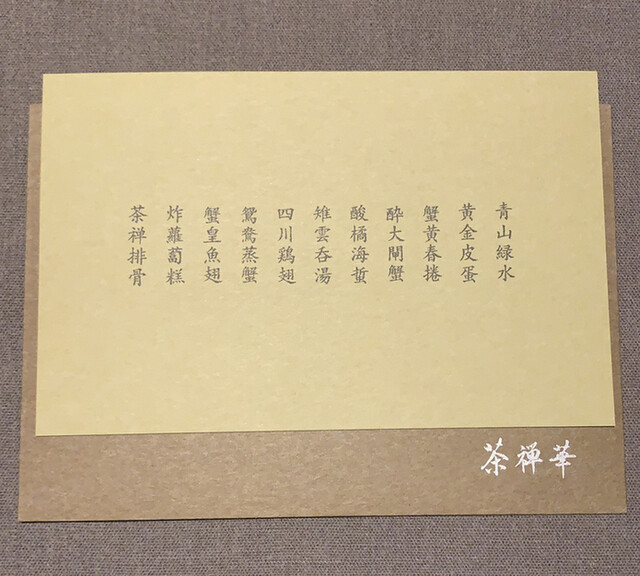 青山緑水
黄金皮蛋
蟹黄春捲
酔大閘蟹
酸橘海蜇
雉雲呑湯
四川鶏翅
鴛鴦蒸蟹
蟹皇魚翅
炸蘿蔔糕
茶禅排骨
茶禅華